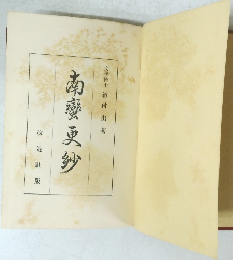 文学博士 新村出著
南蠻更紗
改造社版